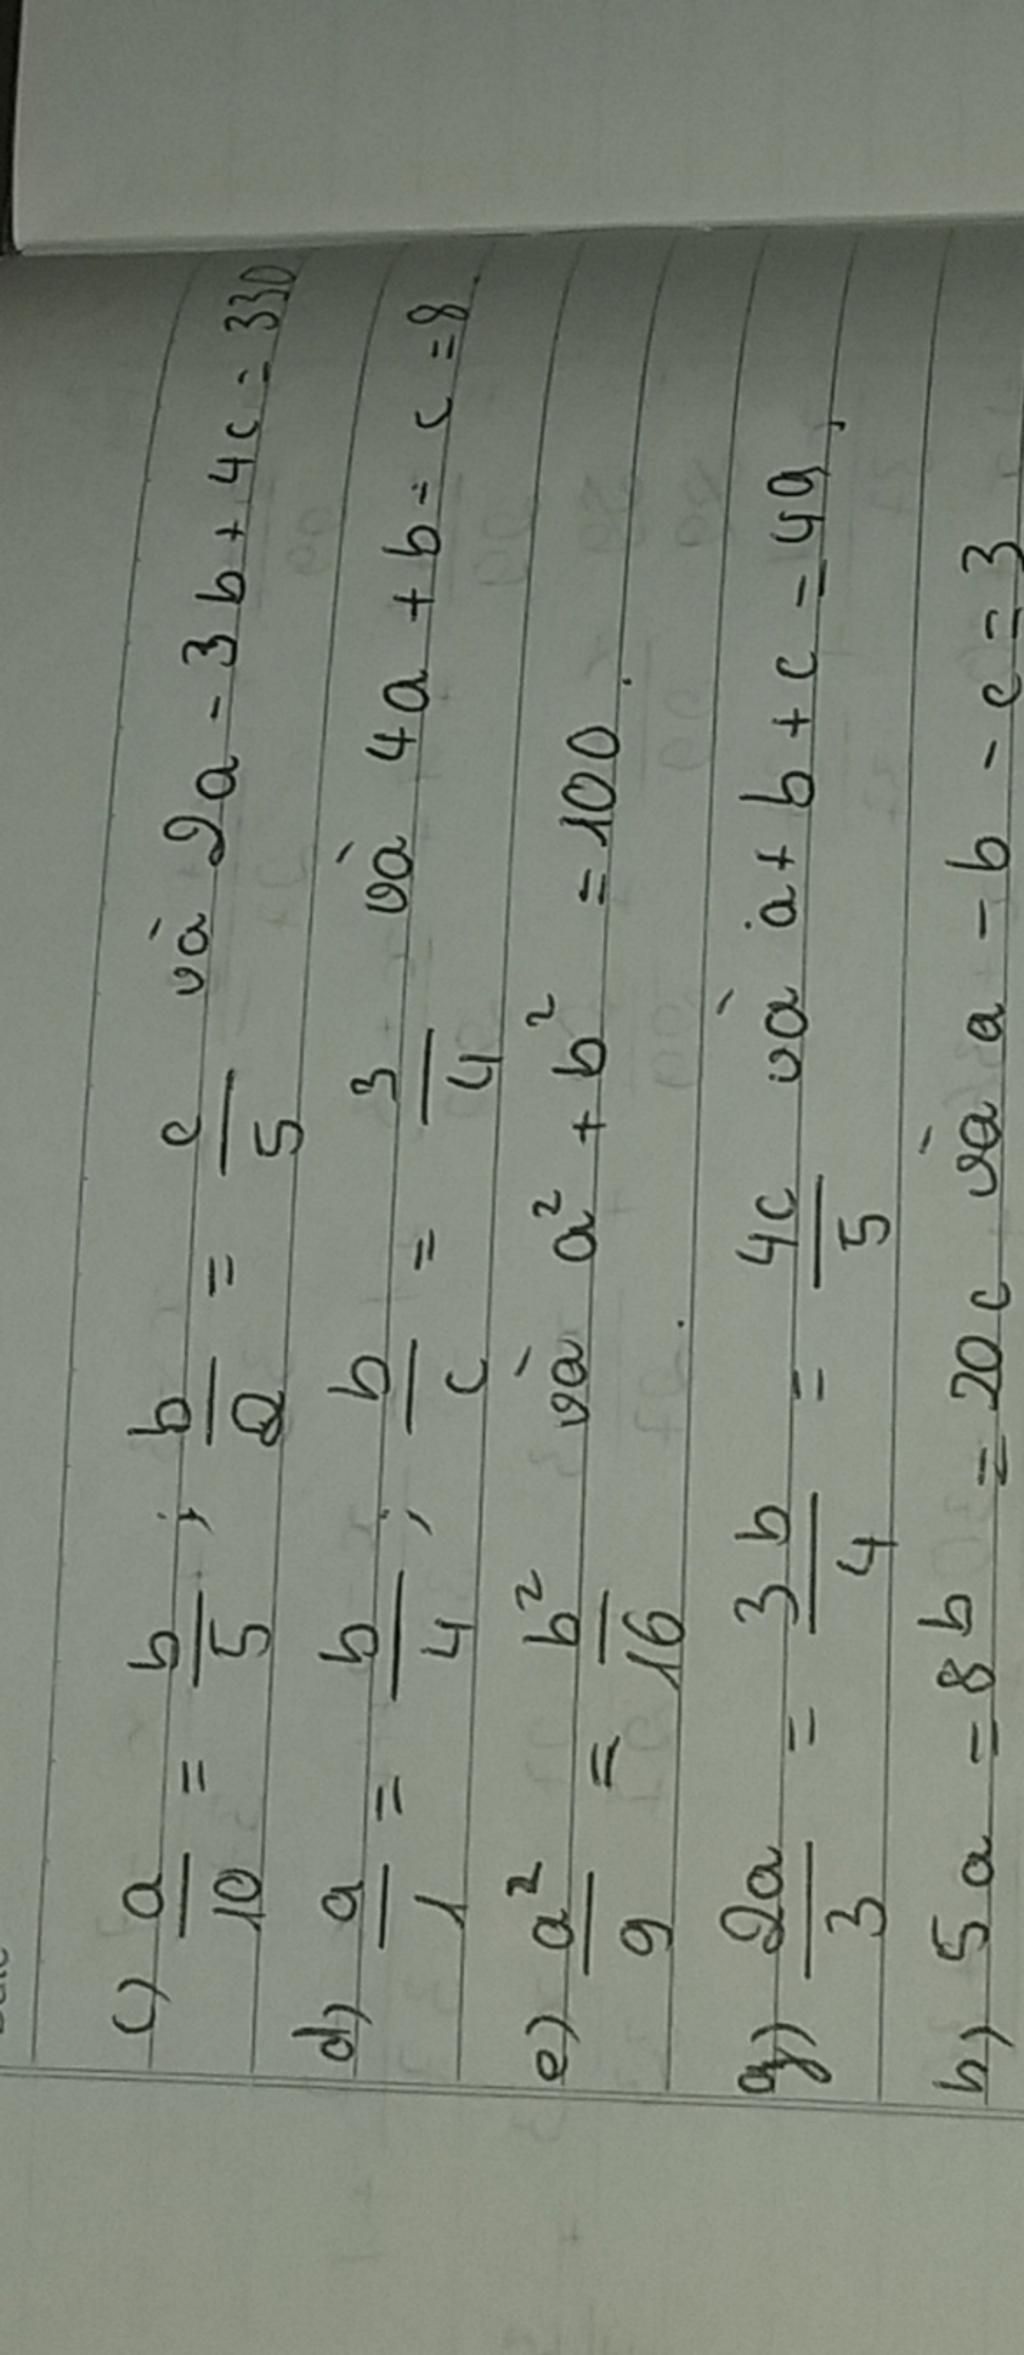 c) a/10 = b/5 ; b/2 = c/5 và 2a - 3b + 4c = 330
d) a/1 = b/4 ; b/c = 3/4 và 4a + b - c = 8.
e) a²/9 = b²/16 và a² + b² = 100.
g) 2a/3 = 3b/4 = 4c/5 và a + b + c = 49,
h) 5a = 8b = 20c và a - b - c = 3